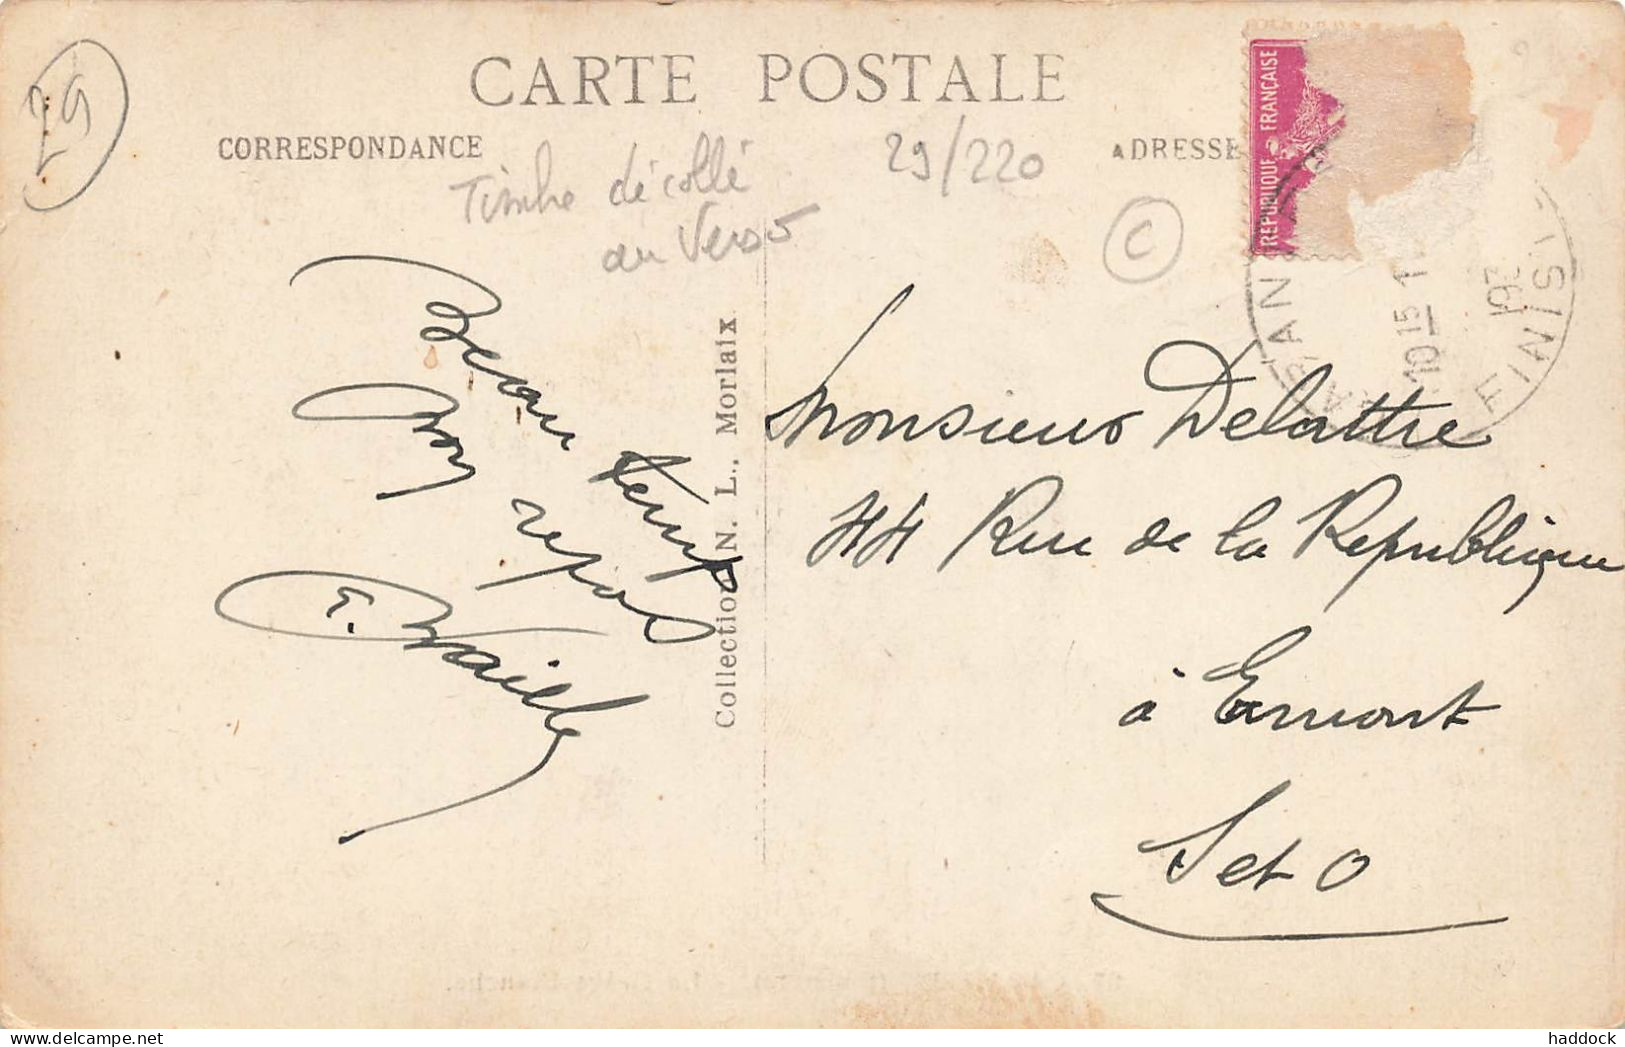 29
CARTE POSTALE
CORRESPONDANCE
ADRESSE
REPUBLIQUE FRANÇAISE
Timbre décollé
au Verso
29/220
C
FINIS
10 15
193
Beau temps
Bon repos
G. Wailly
Collection N. L., Morlaix
Monsieur Delattre
44 Rue de la Republique
à Ermont
S et O
haddock